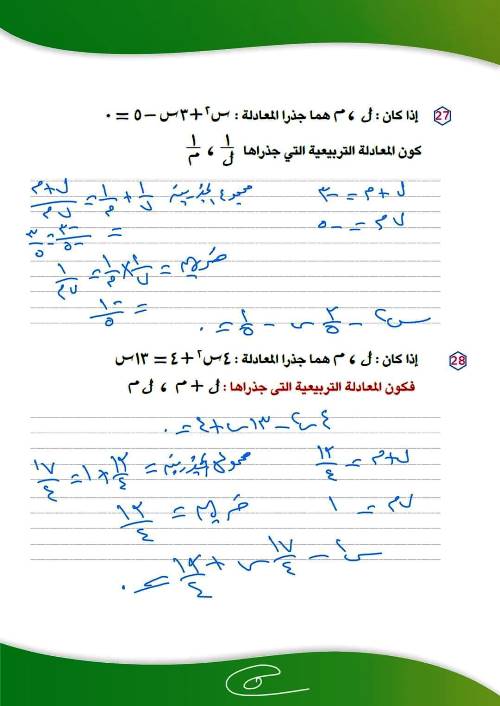 27 إذا كان : ل ، م هما جذرا المعادلة : س٢ + ٣س − ٥ = ٠
كون المعادلة التربيعية التي جذراها ١/ل ، ١/م
ل + م = −٣
ل م = −٥
مجموع الجذرين = ١/ل + ١/م = (ل+م)/(ل م)
= −٣/−٥ = ٣/٥
ضربهم = ١/ل × ١/م = ١/(ل م)
= −١/٥
س٢ − ٣/٥ س − ١/٥ = ٠
28 إذا كان : ل ، م هما جذرا المعادلة : ٤س٢ + ٤ = ١٣س
فكون المعادلة التربيعية التى جذراها : ل + م ، ل م
٤س٢ − ١٣س + ٤ = ٠
ل + م = ١٣/٤
ل م = ١
مجموع الجذرين = ١٣/٤ + ١ = ١٧/٤
ضربهم = ١٣/٤
س٢ − ١٧/٤ س + ١٣/٤ = ٠